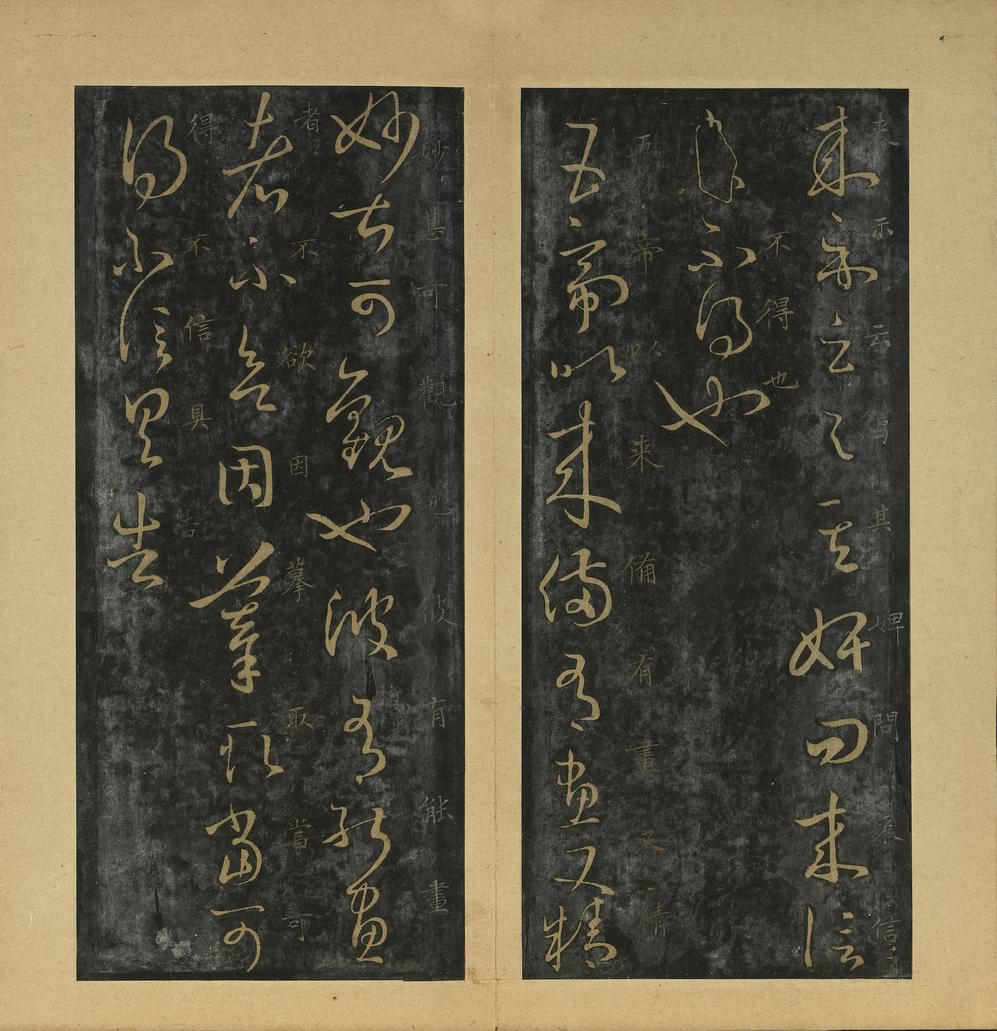 来示云与其婢問来信
來示云与其婢問來信
不得也
不得也
五帝以来備有畫又精
五帝以來備有畫又精
妙甚可觀也彼有能畫
妙甚可觀也彼有能畫
者不欲因摹取當可
者不欲因摹取當可
得不信具告
得不信具告